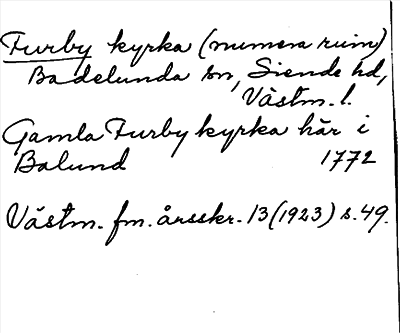 Furby kyrka (numera ruin)
Badelunda sn, Siende hd,
Västm. l.
Gamla Furby kyrka här i
Balund 1772
Västm. fm. årsskr. 13 (1923) s. 49.